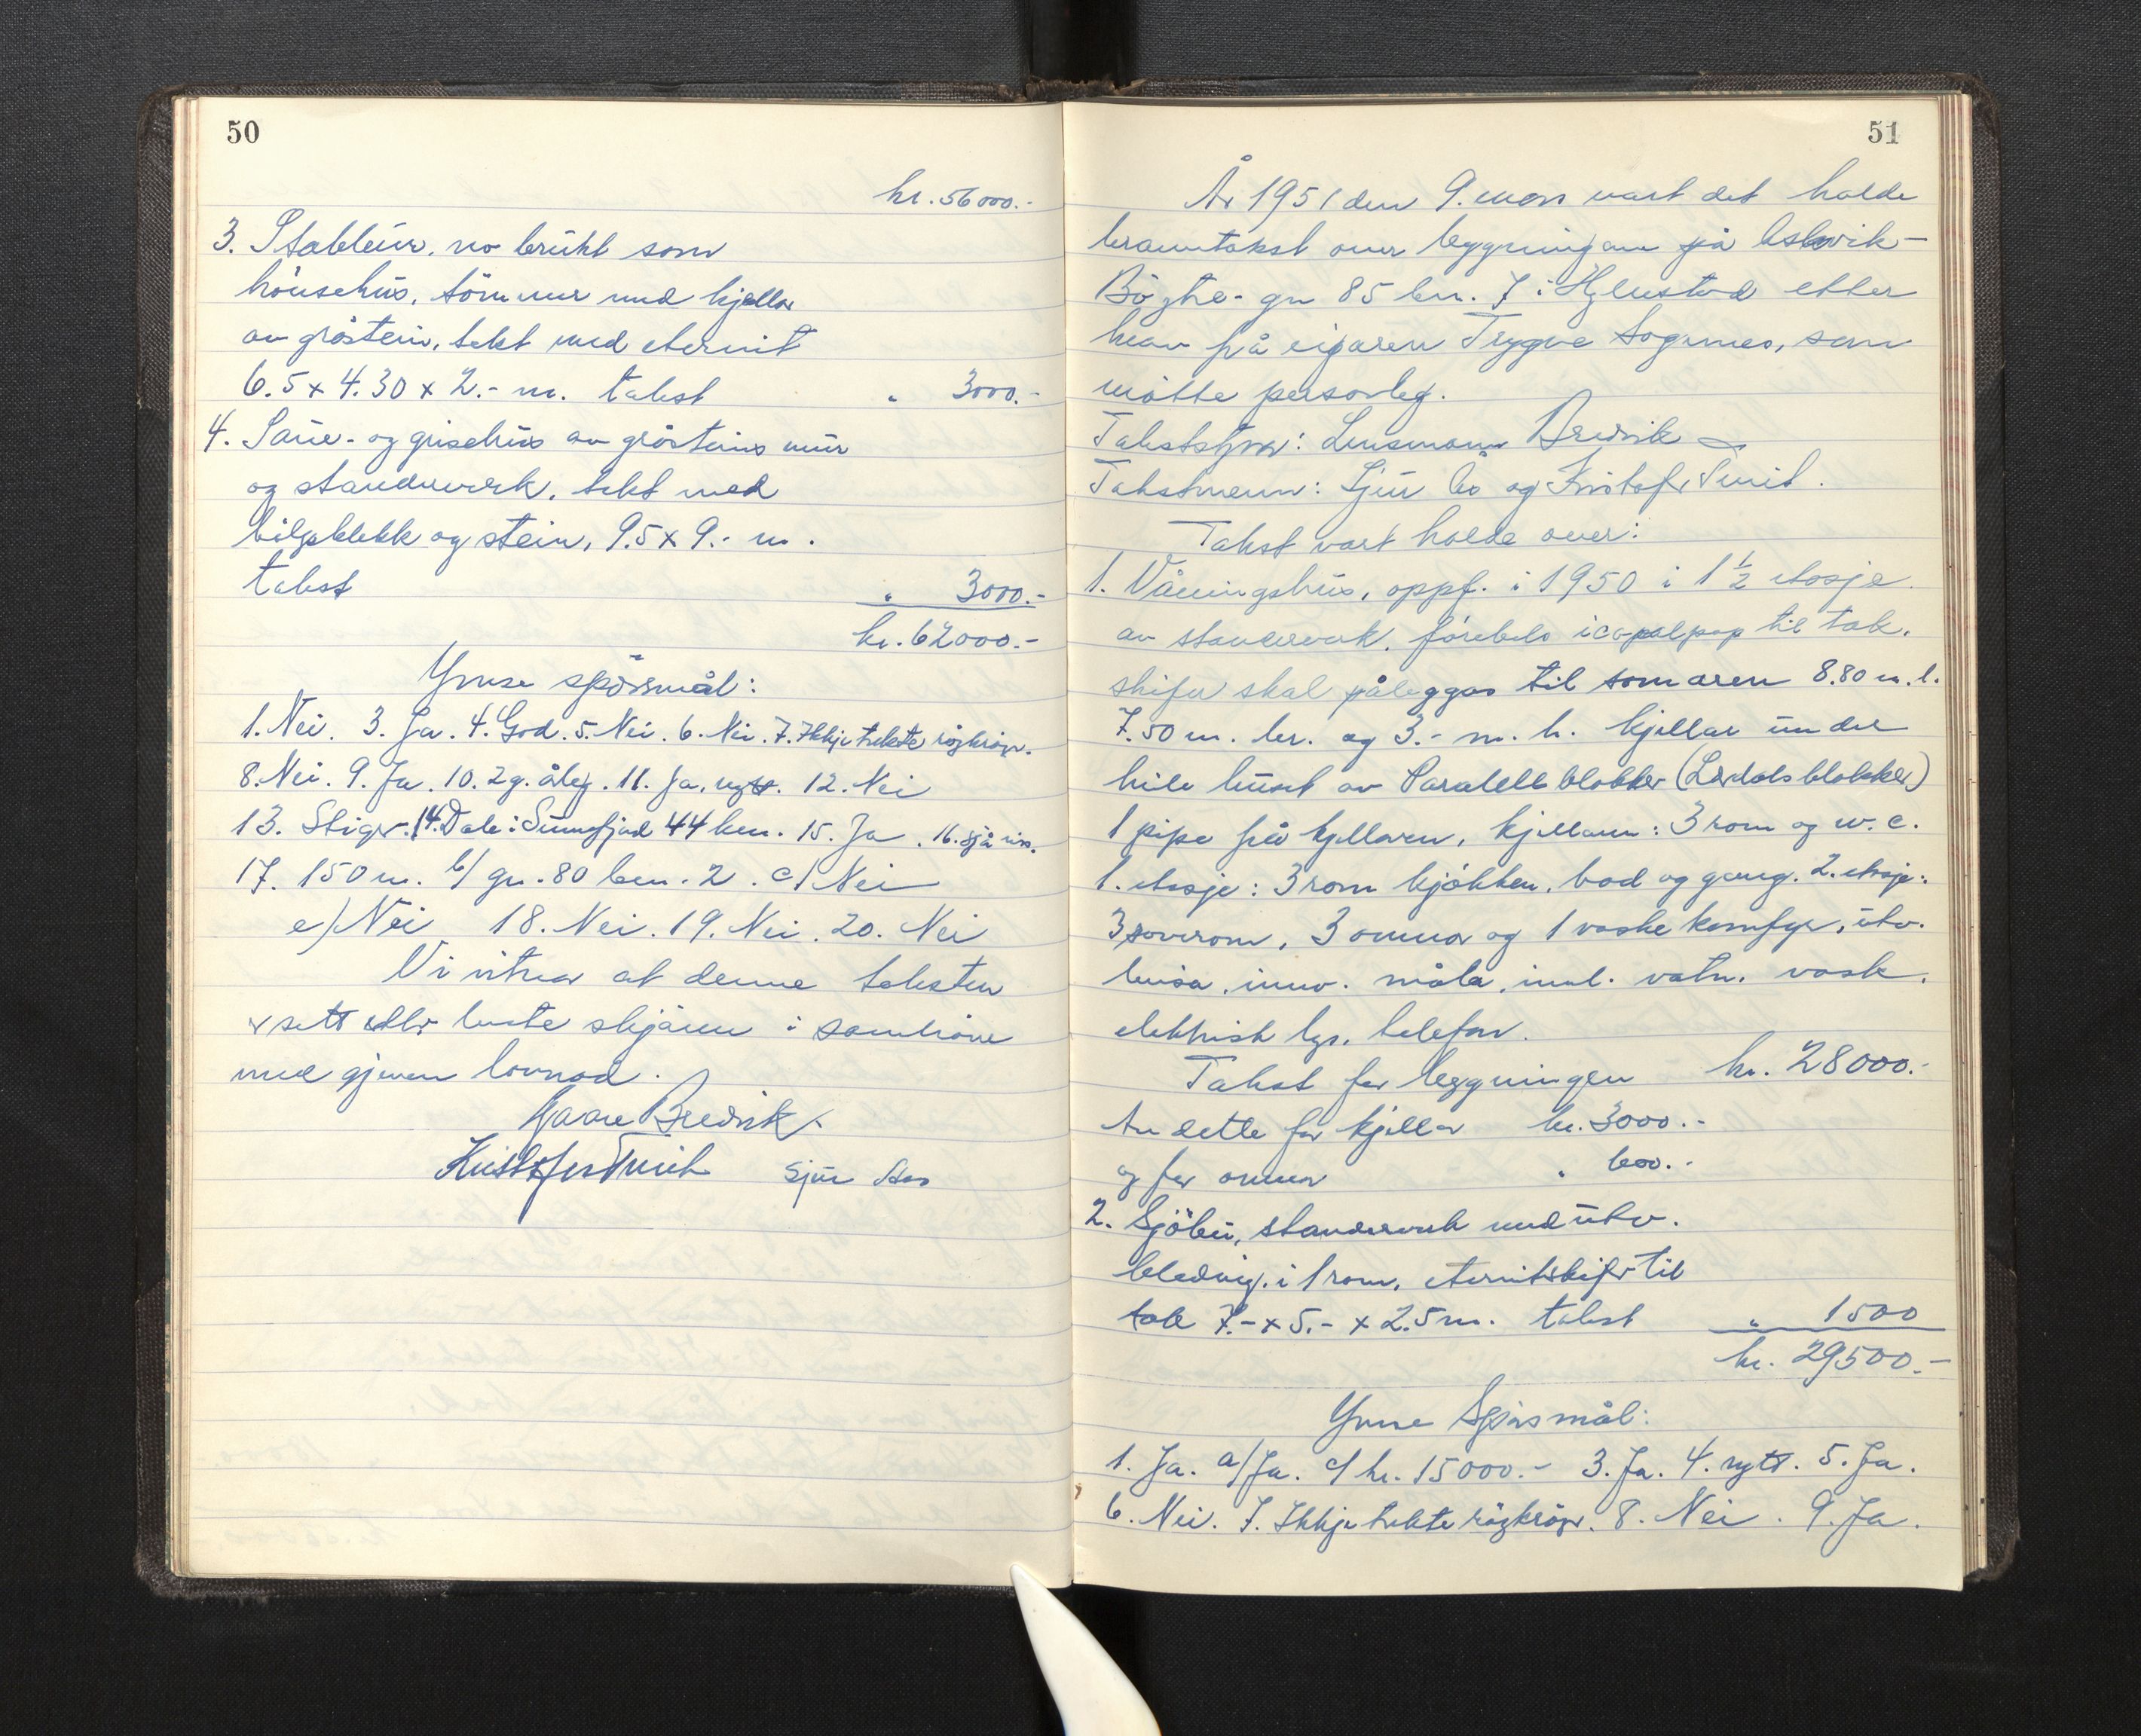 50
kr. 56000.-
3. Stabbur, no brukt som
hönsehus, tömmer med kjellar
av gråstein, tekt med eternit
6.5 x 4.30 x 2.- m. takst " 3000.-
4. Saue- og grisehus av gråsteins mur
og standverk, tekt med
bölgeblekk og stein, 9.5 x 9.- m.
takst " 3000.-
kr. 62000.-
Ymse spörsmål:
1. Nei. 3. Ja. 4. God. 5. Nei. 6. Nei. 7. Ikkje trekte röykröyr.
8. Nei. 9. Ja. 10. 2 g. årleg. 11. Ja, nytt. 12. Nei
13. Stiger. 14. Dale i Sunnfjord 44 km. 15. Ja. 16. Sjå riss.
17. 150 m. b/ gn. 80 bnr. 2. c/ Nei
e/ Nei 18. Nei. 19. Nei. 20. Nei
Vi vitnar at denne taksten
er sett etter beste skjönn i samhöve
med gjeven lovnad.
Kaare Bredvik
Kristofer Tveit Sjur
51
År 1951 den 9. mars vart det halde
branntakst over bygningane på
gn 85 bnr. 7 i Hyllestad etter
krav frå eigaren Trygve Sognnes, som
mötte personleg.
Takststyrar: Lensmann Bredvik
Takstmenn: Sjur og Kristofer Tveit.
Takst vart halde over:
1. Våningshus, oppf. i 1950 i 1 1/2 etasje
av standerverk, förebels icopalpap til tak.
skifer skal påleggas til somaren 8.80 m. l.
7.50 m. br. og 3.- m. h. kjellar under
heile huset av Paralellblokker (Lerdalsblokker)
1 pipe frå kjellaren, kjellaren: 3 rom og w.c.
1. etasje: 3 rom kjökken, bod og gang. 2. etasje:
3 soverom, 3 omnar og 1 vaske komfyr, utv.
beisa, innv. måla, innl. vatn, vask,
elektrisk lys, telefon.
Takst for bygningen kr. 28000.-
Av dette for kjellar kr. 3000.-
og for omnar " 600.-
2. Sjöbu, standerverk med utv.
kledning, i 1 rom, eternitskifer til
tak 7.- x 5.- x 2.5 m. takst " 1500
kr. 29500.-
Ymse Spörsmål:
1. Ja. a/ Ja. c/ kr. 15000.- 3. Ja. 4. nytt. 5. Ja.
6. Nei. 7. Ikkje trekte röykröyr. 8. Nei. 9. Ja.